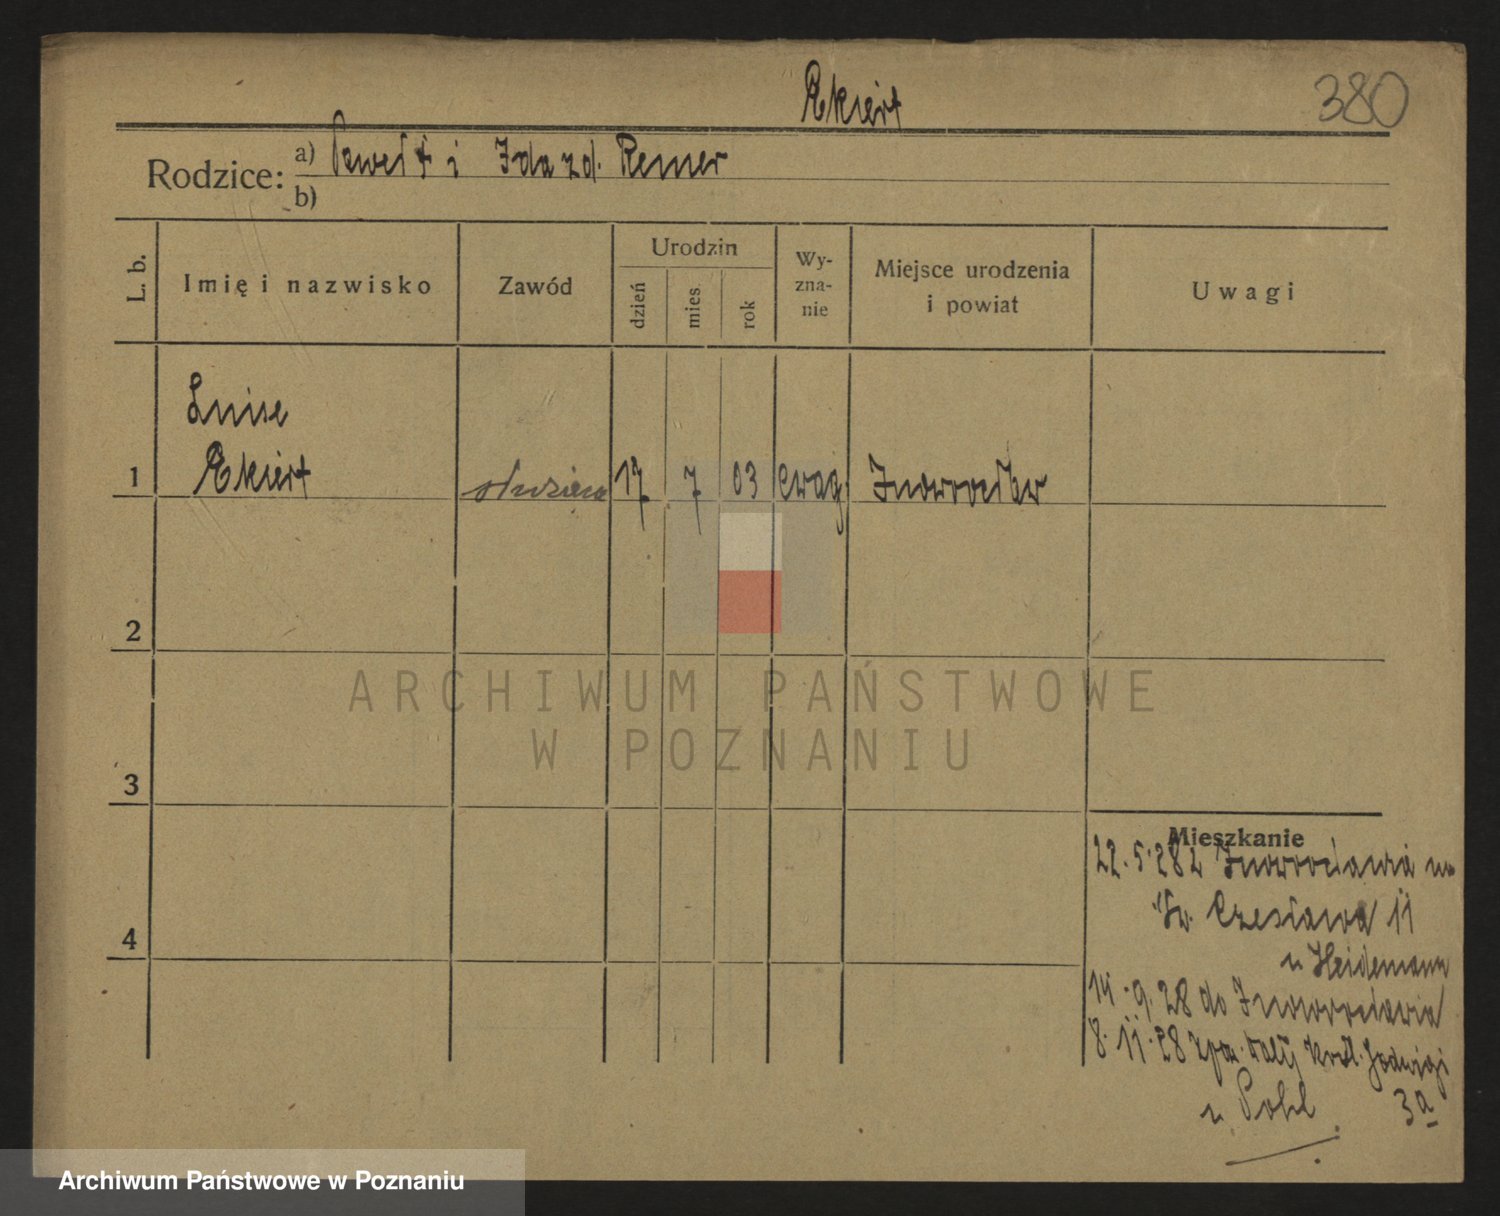 Ekiert
380
Rodzice: a) Paweł i Ida zd. Remer
b)
L. b.
Imię i nazwisko
Zawód
Urodzin
dzień
mies.
rok
Wy-
zna-
nie
Miejsce urodzenia
i powiat
Uwagi
Luise
1 Ekiert 17 7 03 ewag. Inowrocław
2
ARCHIWUM PAŃSTWOWE
W POZNANIU
3
Mieszkanie
22.5.28 z Inowrocławia na
4 Czesława 11
u Heidemann
14.9.28 do Inowrocławia
8.11.28 Król. Jadwigi
u Pohl 3a
Archiwum Państwowe w Poznaniu